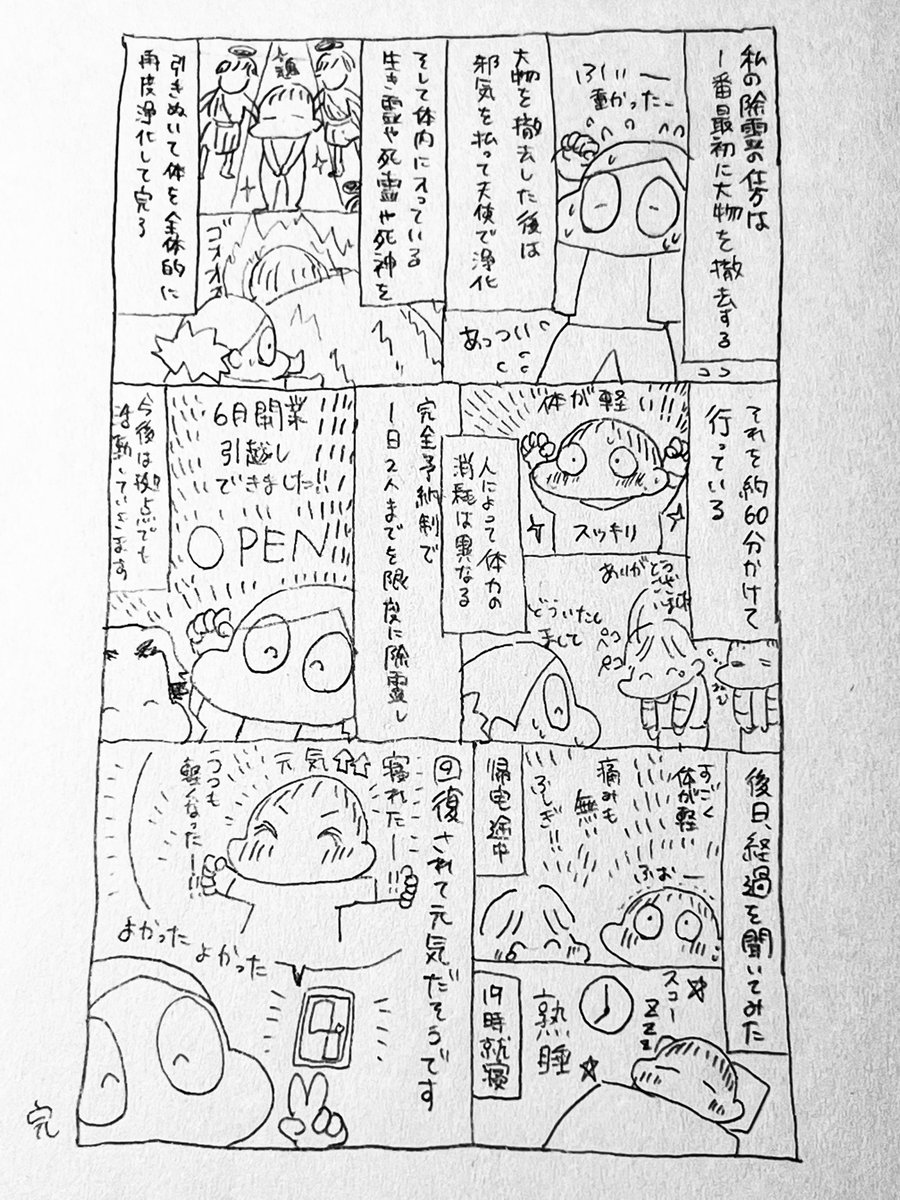 私の除霊の仕方は
一番最初に大物を撤去する
ふぃー
動かったー
大物を撤去した後は
邪気を払って天使で浄化
あっつい
そして体内に入っている
生き霊や死霊や死神を
ゴオオオ
引きぬいて体を全体的に
再度浄化して完了
それを約60分かけて
行っている
体が軽い!!!
スッキリ
人によって体力の
消耗は異なる
ありがとう
ござい
ペコ
ペコ
どういたし
まして
完全予約制で
一日2人までを限度に除霊し
6月開業
引越し
できました!!
OPEN
今後は拠点でも
活動していきます
後日、経過を聞いてみた
すごく
体が軽
痛みも
無
ふしぎ!!
ふおー
帰宅途中
スコー
ZZZ
熟睡
19時就寝
回復されて元気だそうです
元気
寝れたー!!
うつも
軽くなったー!!
よかった
よかった
完